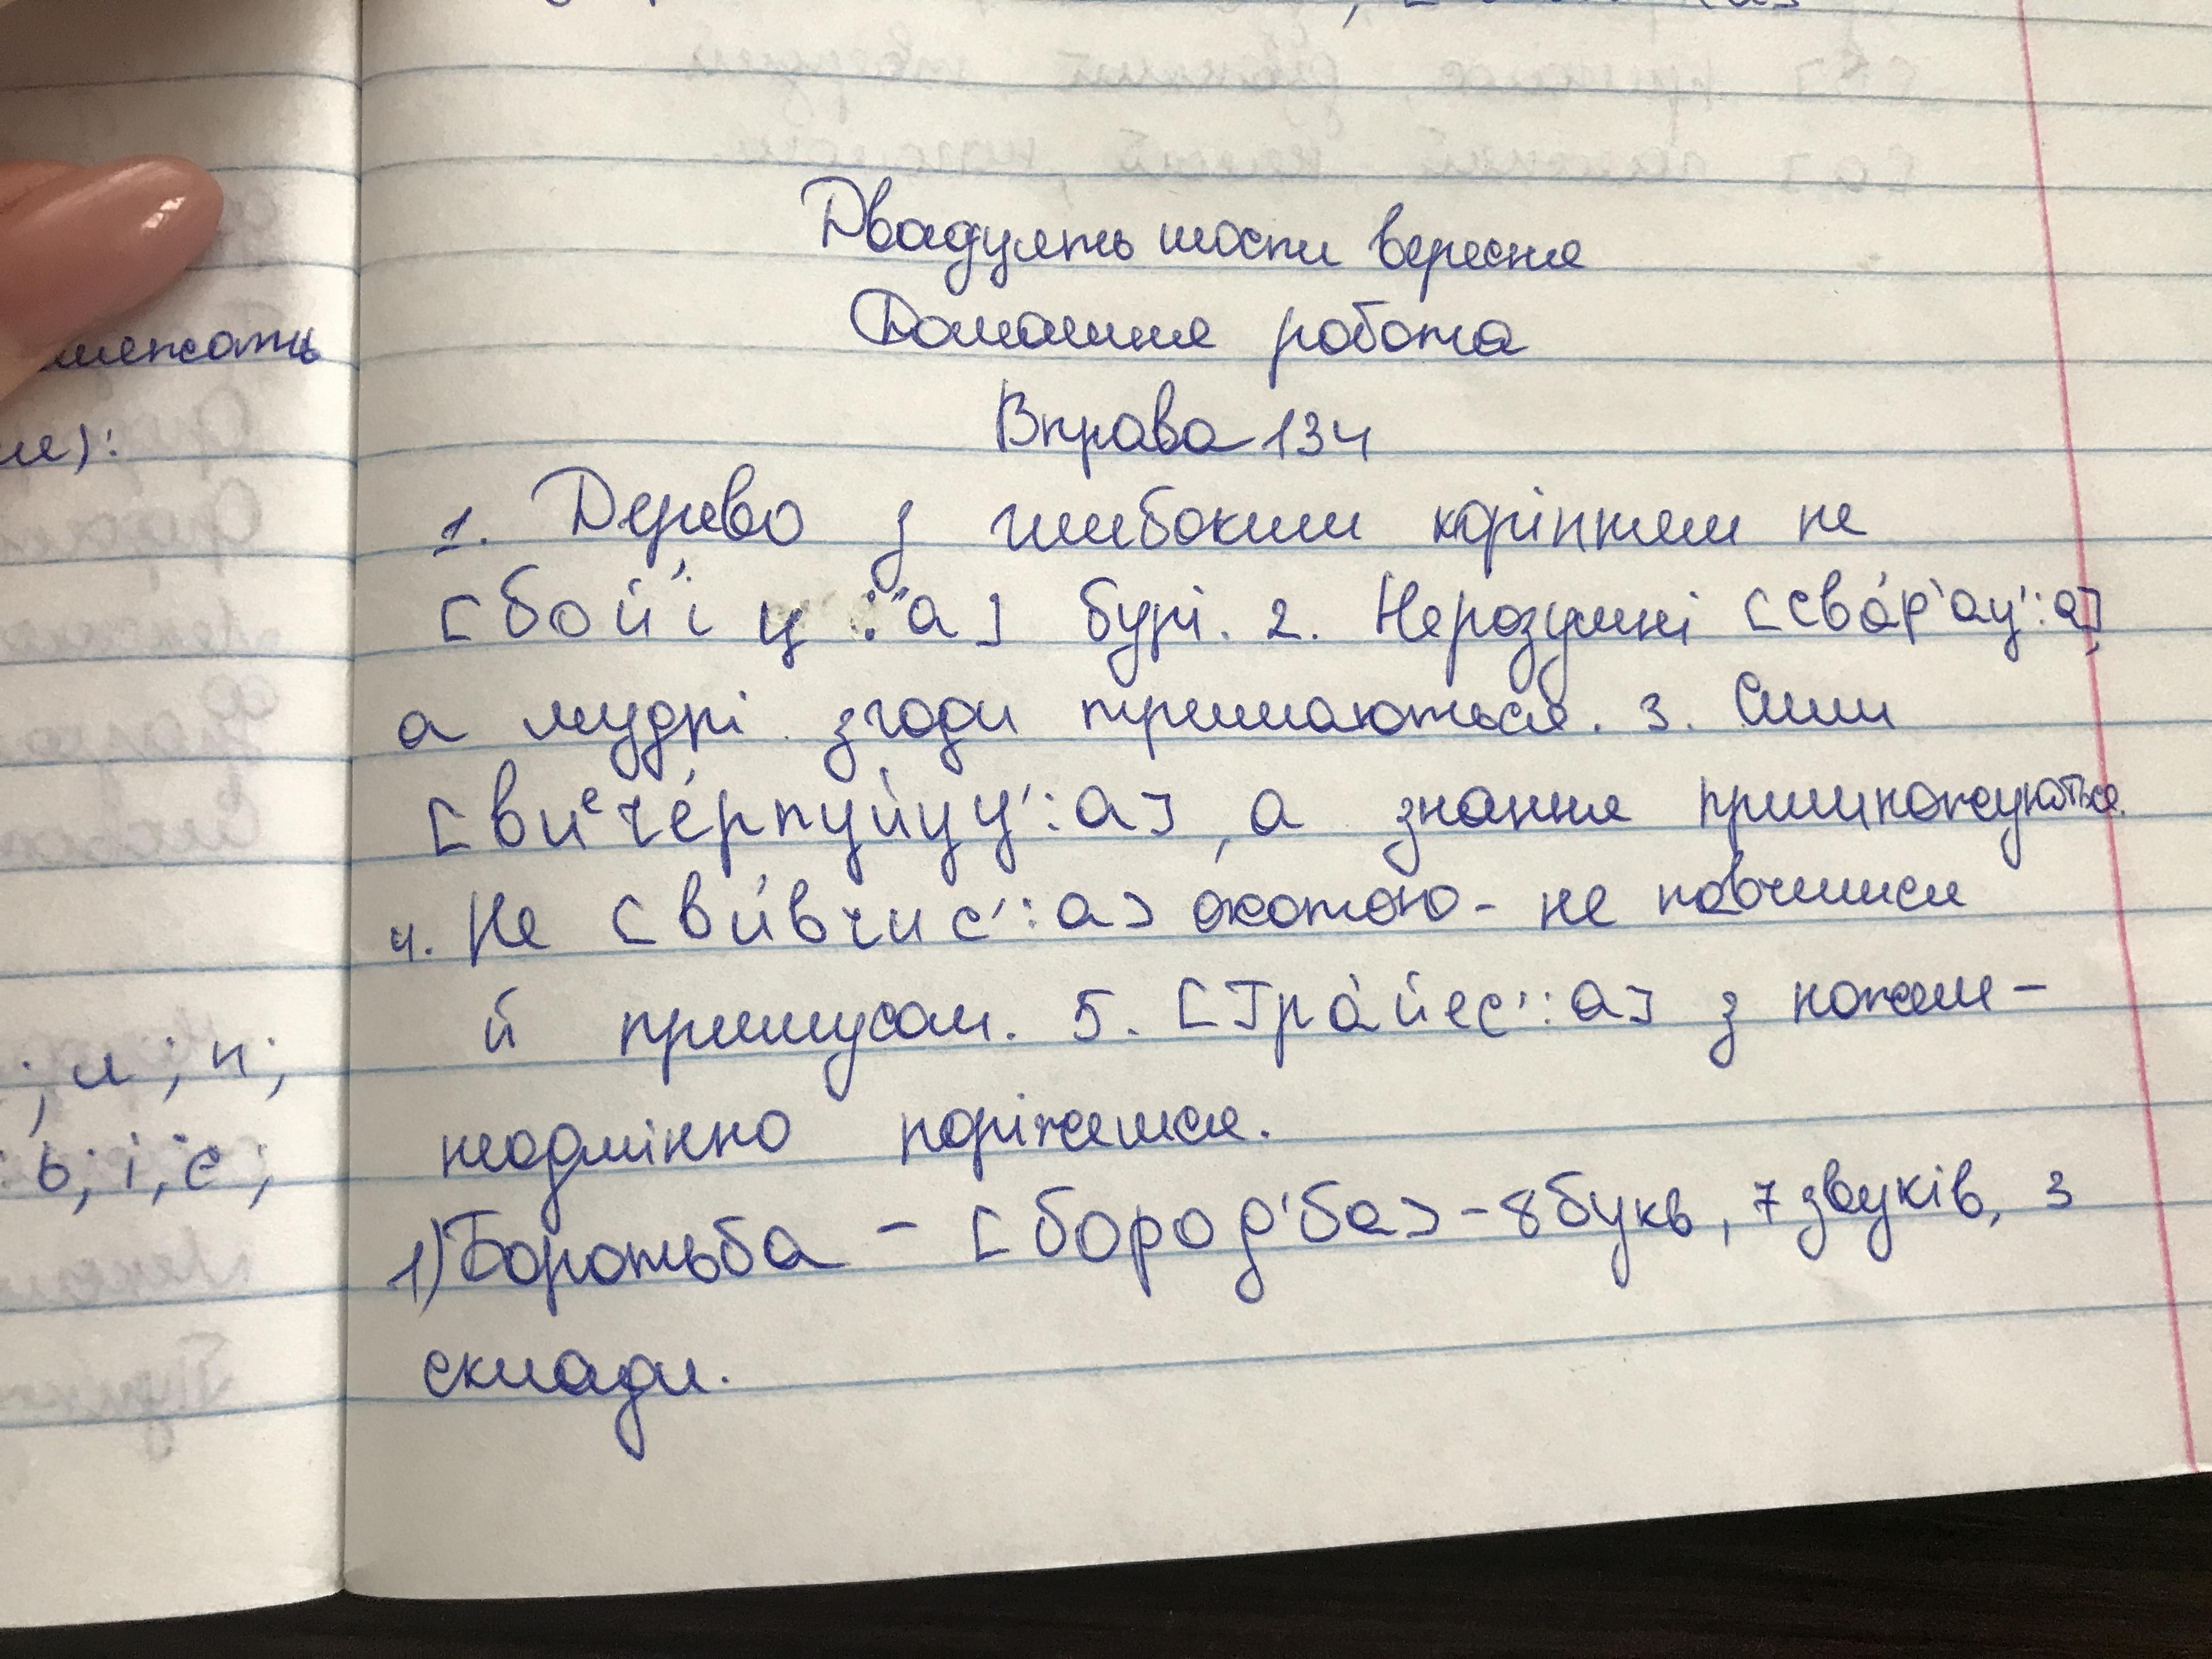 Двадцять шости вересня
Домашня робота
Вправа 134
1. Дерево з глибоким корінням не
[бойі́ц′:а] бурі. 2. Нерозумні [сва́р′ац′:а],
а мудрі згоди тримаються. 3. Сили
[виᵉче́рпуйуц′:а], а знання примножуються.
4. Не [ви́вчис′:а] охотою - не навчишся
й примусом. 5. [Гра́йес′:а] з ножем -
неодмінно поріжешся.
1) Боротьба - [бород′ба] - 8 букв, 7 звуків, 3
склади.
лежать
ня):
; л; н;
ь; і; є;